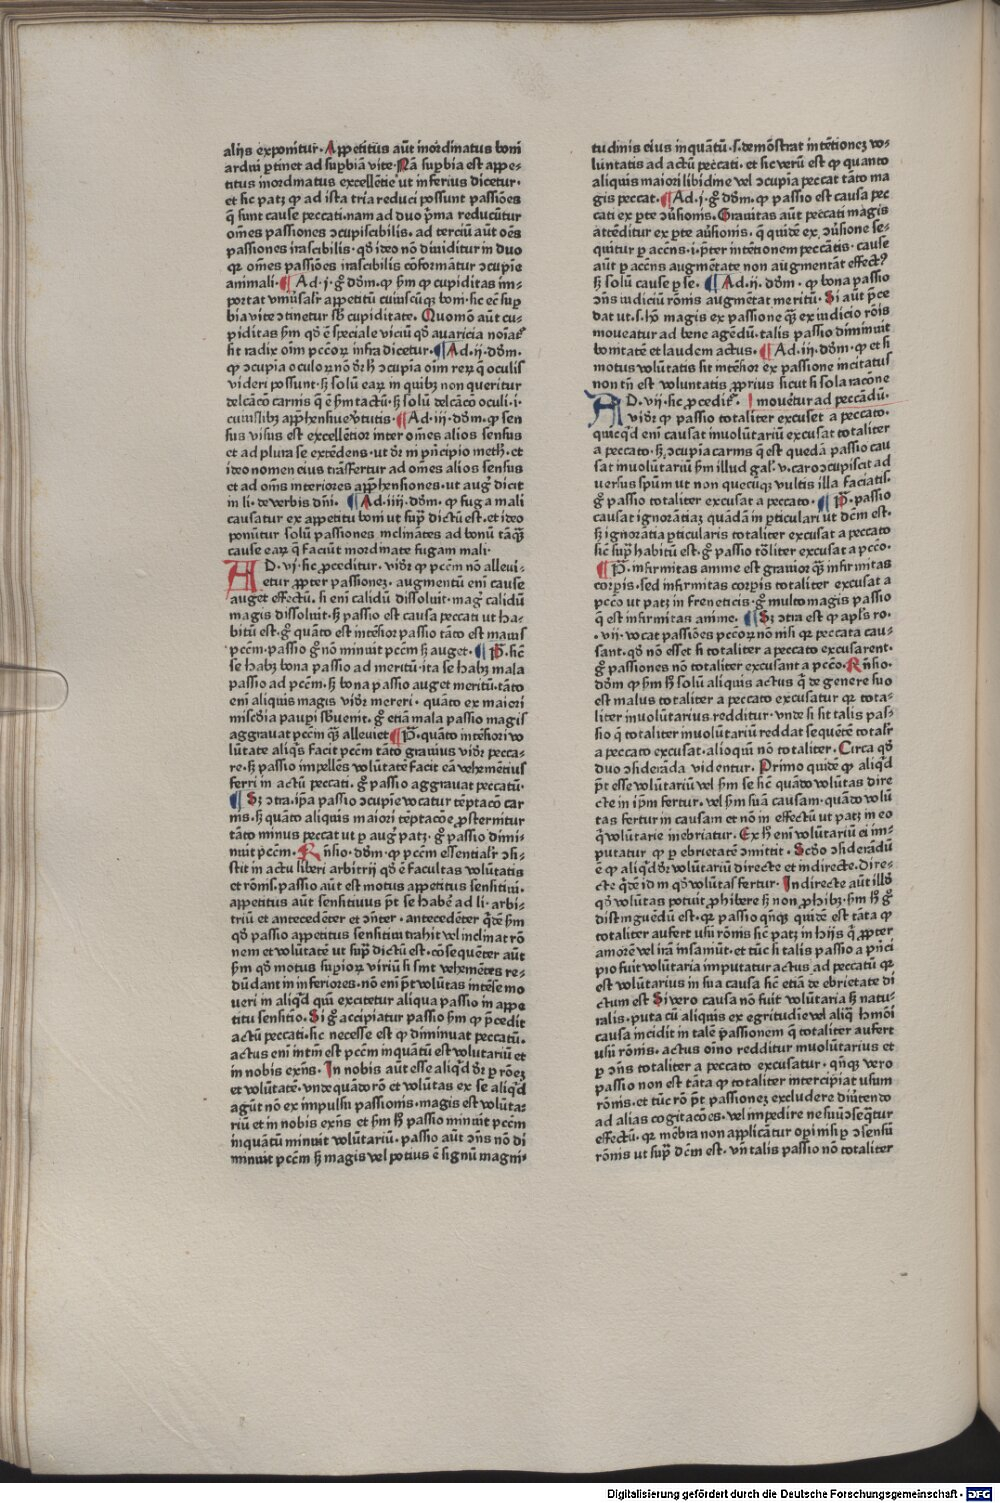 alijs exponitur. Appetitus aūt inordinatus boni
ardui ꝑtinet ad suꝑbiā vite. Nā suꝑbia est appe-
titus inordinatus excellētie ut inferius dicetur.
et sic patꝫ ꝙ ad ista tria reduci possunt passiōes
q̄ sunt cause peccati. nam ad duo pͥma reducūtur
om̄es passiones ꝯcupiscibilis. ad terciū aūt oēs
passiones irascibilis. qd̄ ideo nō diuiditur in duo
qꝛ om̄es passiōes irascibilis cōformātur ꝯcupīe
animali. ¶ Ad .j. gͦ dōm. ꝙ ẜm ꝙ cupiditas im-
portat vniūsalr̄ appetitū cuiuscūqꝫ boni. sic ec̄ suꝑ
bia vite ꝯtinetur sb̄ cupiditate. Quomō aūt cu-
piditas ẜm qd̄ ē speciale viciū qd̄ auaricia noīat᷑
sit radix oīm pccōꝝ infra dicetur. ¶ Ad .ij. dōm.
ꝙ ꝯcupīa oculoꝝ nō dr̄ hͥ ꝯcupīa oīm reꝝ q̄ oculis
videri possunt. sꝫ solū eaꝝ in quibꝫ non queritur
delcāco carnis q̄ ē ẜm tactū. sꝫ solū delcāco oculi .i.
cuiuslibꝫ app̄hensiue v̄tutis. ¶ Ad .iij. dōm. ꝙ sen
sus visus est excellētior inter om̄es alios sensus
et ad plura se extēdens. ut dr̄ in pͥncipio meth̄. et
ideo nomen eius trāsfertur ad om̄es alios sensus
et ad om̄s interiores app̄hēsiones. ut augͥ dicit
in li. de verbis dn̄i. ¶ Ad .iiij. dōm. ꝙ fuga mali
causatur ex appetitu boni ut supͣ dictū est. et ideo
ponūtur solū passiones inclinātes ad bonū tāqꝫ̄
cause eaꝝ q̄ faciūt inordinate fugam mali.
AD .vj. sic ꝓceditur. vidr̄ ꝙ pccm̄ nō allevi-
etur ꝓpter passionē. augmētū eni cause
auget effectū. si eni calidū dissoluit. magͥ calidū
magis dissoluit. sꝫ passio est causa peccati ut ha-
bitū est. gͦ quāto est intēsior passio tāto est maius
pccm̄. passio gͦ nō minuit pccm̄ sꝫ auget. ¶ P̄. sic̄
se habꝫ bona passio ad meritū. ita se habꝫ mala
passio ad pccm̄. sꝫ bona passio auget meritū. tāto
eni aliquis magis vidr̄ mereri. quāto ex maiori
misc̄dia paupi sb̄uenit. gͦ etiā mala passio magis
aggravat pccm̄ qꝫ̄ alleviet. ¶ P̄. quāto intēsiori vo
lūtate aliqͥs facit pccm̄ tāto gravius vidr̄ pecca-
re. sꝫ passio impellēs volūtatē facit eā vehemētius
ferri in actū peccati. gͦ passio aggravat peccatū.
¶ Sꝫ ꝯtra. ipͣa passio ꝯcupīe vocatur tēptacō car
nis. sꝫ quāto aliquis maiori tēptacōe ꝓsternitur
tāto minus peccat ut ꝑ augͥ patꝫ. gͦ passio dimi-
nuit pccm̄. Rn̄sio. dōm. ꝙ pccm̄ essentialr̄ ꝯsi-
stit in actu liberi arbitrij qd̄ ē facultas volūtatis
et rōnis. passio aūt est motus appetitus sensitivi.
appetitus aūt sensitivus pt̄ se habē ad li. arbi-
triū et antecedēter et ꝯn̄ter. antecedēter qͥdē ẜm
qd̄ passio appetitus sensitivi trahit vel inclinat rō
nem et volūtatē ut supͣ dictū est. cōsequēter aūt
ẜm qd̄ motus supioꝝ viriū si sint vehemētes re-
dūdant in inferiores. nō eni pt̄ volūtas intēse mo
veri in aliqͥd qui excitetur aliqua passio in appe
titu sensitio. Si gͦ accipiatur passio ẜm ꝙ p̄cedit
actū peccati. sic necesse est ꝙ diminuat peccatū.
actus eni intm̄ est pccm̄ inquātū est volutariū et
in nobis exn̄s. In nobis aūt esse aliqͥd dr̄ ꝑ rōeꝫ
et volūtatē. vnde quādo rō et volūtas ex se aliqͥd
agūt nō ex impulsu passionis. magis est volūta-
riū et in nobis exn̄s et ẜm hͦ passio minuit pccm̄
inquātū minuit volūtariū. passio aūt ꝯn̄s nō di
minuit pccm̄ sꝫ magis vel potius ē signū magni-
tudinis eius inquātū .s. demōstrat intētioneꝫ vo-
luntatis ad actū peccati. et sic verū est ꝙ quanto
aliquis maiori libidine vel ꝯcupīa peccat tāto ma
gis peccat. ¶ Ad .j. gͦ dōm. ꝙ passio est causa pec
cati ex ꝑte ꝯūsionis. Gravitas aūt peccati magis
attēditur ex ꝑte aūsionis. q̄ quidē ex ꝯūsione se-
quitur ꝑ accn̄s .i. pͥter intētionem peccātis. cause
aūt ꝑ accn̄s augmētate non augmentāt effectꝰ
sꝫ solū cause ꝑ se. ¶ Ad .ij. dōm. ꝙ bona passio
ꝯn̄s iudiciū rōnis augmētat meritū. Si aūt p̄ce
dat ut .s. hō magis ex passione qꝫ̄ ex iudicio rōis
moveatur ad bene agēdū. talis passio diminuit
bonitatē et laudem actus. ¶ Ad .iij. dōm. ꝙ et si
motus volūtatis sit intēsior ex passione incitatus
non tn̄ est voluntatis ꝓprius sicut si sola racōne
moveētur ad peccādū.
AD .vij. sic ꝓcedit᷑.
vidr̄ ꝙ passio totaliter excuset a peccato.
quicqͥd eni causat involūtariū excusat totaliter
a peccato. sꝫ ꝯcupīa carnis q̄ est quedā passio cau
sat involūtariū ẜm illud galͣ. v. caro ꝯcupiscit ad
versus spm̄ ut non quecūqꝫ vultis illa faciatis.
gͦ passio totaliter excusat a peccato. ¶ P̄. passio
causat ignorātiaꝫ quādā in ꝑticulari ut dc̄m est.
sꝫ ignorātia ꝑticularis totaliter excusat a peccato
sic̄ supͣ habitū est. gͦ passio tōliter excusat a pccō.
¶ P̄. infirmitas anime est gravior qꝫ̄ infirmitas
corꝑis. sed infirmitas corꝑis totaliter excusat a
pccō ut patꝫ in freneticis. gͦ multo magis passio
q̄ est infirmitas anime. ¶ Sꝫ ꝯtra est ꝙ apl̄s ro.
.vij. vocat passiōes pccōꝝ nō nisi qꝛ peccata cau-
sant. qd̄ nō esset si totaliter a peccato excusarent.
gͦ passiones nō totaliter excusant a pccō. Rn̄sio.
dōm ꝙ ẜm hͦ solū aliquis actus qͥ de genere suo
est malus totaliter a peccato excusatur qꝛ tota-
liter involūtarius redditur. vnde si sit talis pas-
sio q̄ totaliter involūtariū reddat sequētē totalr̄
a peccato excusat. alioquin nō totaliter. Circa qd̄
duo ꝯsiderāda videntur. Primo quidē ꝙ aliqͥd
pt̄ esse volūtariū vel ẜm se sic̄ quādo volūtas dire
cte in ip̄m fertur. vel ẜm suā causam. quādo volū
tas fertur in causam et nō in effectū ut patꝫ in eo
qͥ volūtarie inebriatur. Ex hͦ eni volūtariū ei im-
putatur ꝙ ꝑ ebrietatē ꝯmittit. Scd̄o ꝯsiderādū
ē ꝙ aliqͥd dr̄ volūtariū directe et indirecte. Dire-
cte qͥdē id in qd̄ volūtas fertur. Indirecte aūt illd̄
qd̄ volūtas potuit ꝓhibere sꝫ non ꝓhibꝫ. ẜm hͦ gͦ
distinguēdū est. qꝛ passio qn̄qꝫ quidē est tāta ꝙ
totaliter aufert usū rōnis sic̄ patꝫ in hijs qͥ ꝓpter
amorē vel irā insaniūt. et tūc si talis passio a pͥnci
pio fuit volūtaria imputatur actus ad peccatū qꝛ
est volūtarius in sua causa sic̄ etiā de ebrietate di
ctum est. Si vero causa nō fuit volūtaria sꝫ natu-
ralis. puta cū aliquis ex egritudīe vel aliqͣ hmōi
causa incidit in talē passionem q̄ totaliter aufert
usū rōnis. actus oīno redditur involūtarius et
ꝑ ꝯn̄s totaliter a peccato excusatur. qn̄qꝫ vero
passio non est tāta ꝙ totaliter intercipiat usum
rōnis. et tūc rō pt̄ passioneꝫ excludere divertendo
ad alias cogitacōes. vel impedire ne suū ꝯseqͣtur
effectū. qꝛ mēbra non applicātur oꝑi nisi ꝑ ꝯsensū
rōnis ut supͣ dc̄m est. vn̄ talis passio nō totaliter
Digitalisierung gefördert durch die Deutsche Forschungsgemeinschaft - DFG